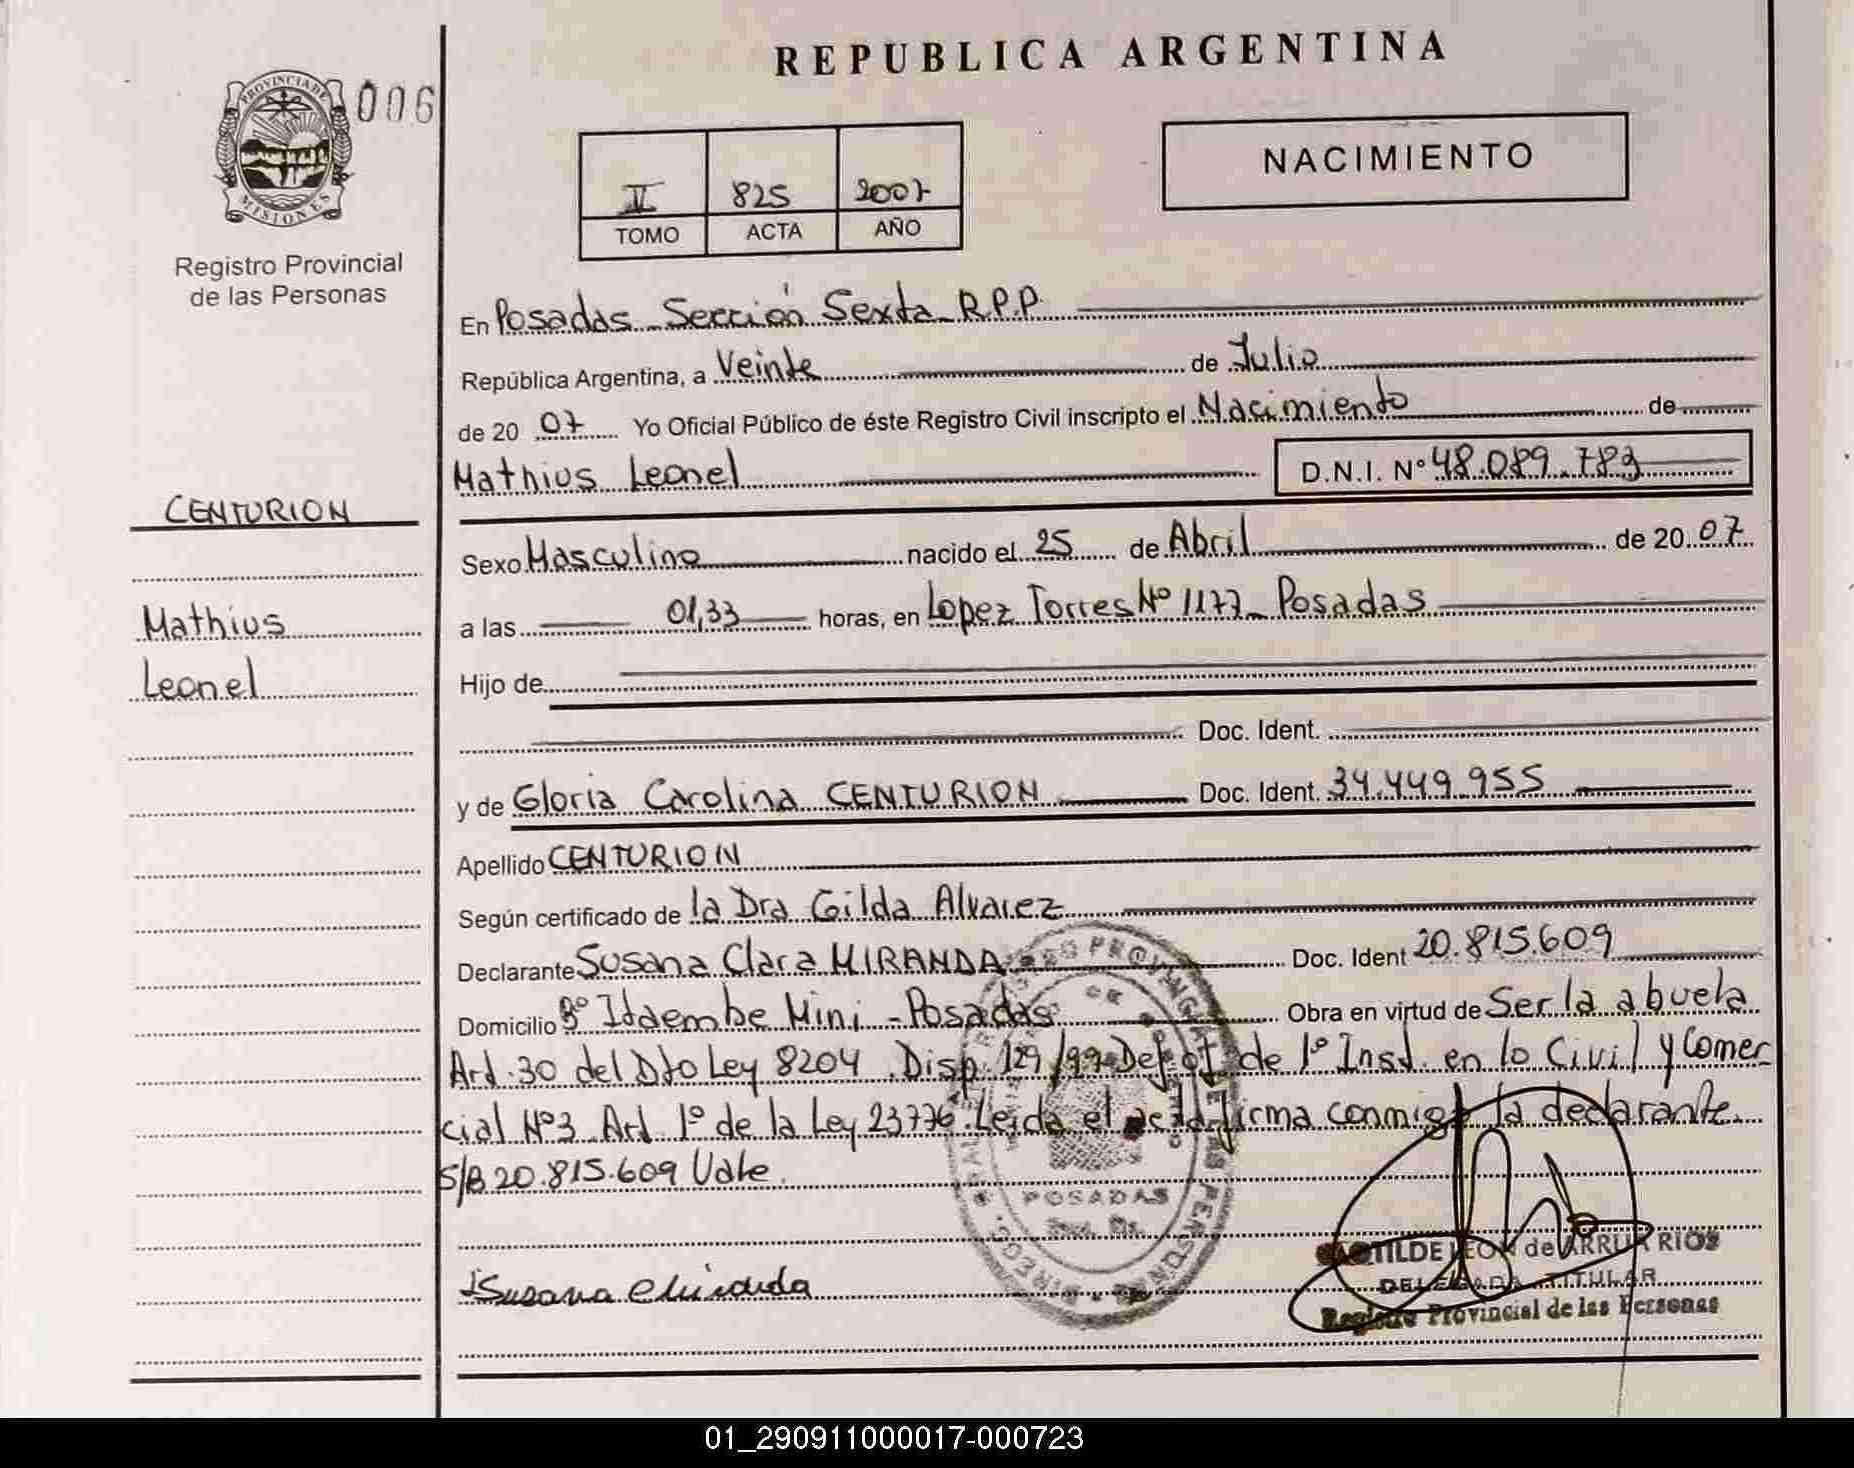 REPUBLICA ARGENTINA
PROVINCIA DE
MISIONES
006
NACIMIENTO
II 825 2007
TOMO ACTA AÑO
Registro Provincial
de las Personas
En Posadas Sección Sexta R.P.P.
República Argentina, a Veinte de Julio
de 20 07 Yo Oficial Público de éste Registro Civil inscripto el Nacimiento de
Mathius Leonel D.N.I. Nº 48.089.783
CENTURION
Sexo Masculino nacido el 25 de Abril de 20 07
Mathius
a las 01,33 horas, en Lopez Torres Nº 1177 Posadas
Leonel
Hijo de
Doc. Ident.
y de Gloria Carolina CENTURION Doc. Ident. 34.449.955
Apellido CENTURION
Según certificado de la Dra Gilda Alvarez
Declarante Susana Clara MIRANDA Doc. Ident 20.815.609
Domicilio Bº Itaembe Mini - Posadas Obra en virtud de Ser la abuela
Art. 30 del Dto Ley 8204 Disp. 129/99 de 1º Inst. en lo Civil y Comer
cial Nº3 Art 1º de la Ley 23776. Leida el acta firma conmigo la declarante
S/B 20.815.609 Vale.
POSADAS
LEON de ARRUA RIOS
DELEGADA TITULAR
Registro Provincial de las Personas
01_290911000017-000723